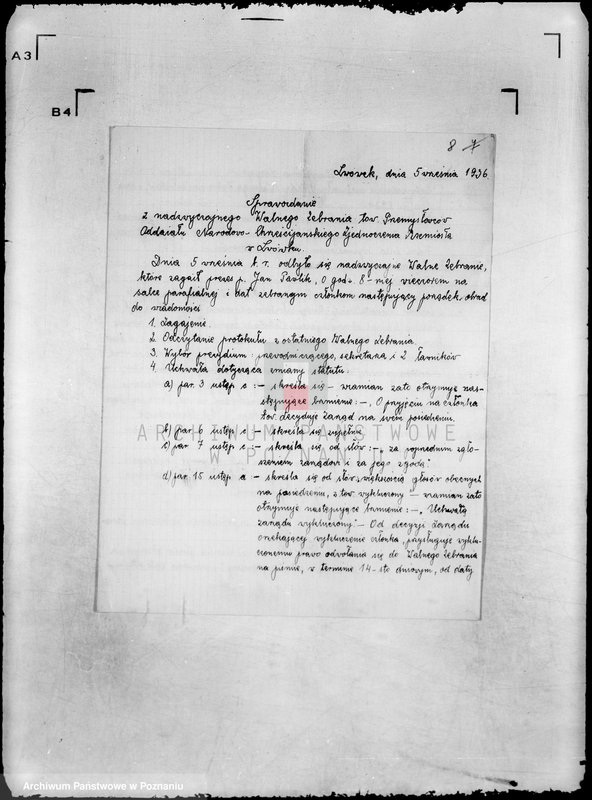 A3
B4
8 7
Lwówek, dnia 5 września 1936
Sprawozdanie
z nadzwyczajnego Walnego Zebrania tow. Przemysłowców
Oddziału Narodowo-Chrześcijańskiego Zjednoczenia Rzemiosła
w Lwówku.
Dnia 5 września b. r. odbyło się nadzwyczajne Walne Zebranie,
które zagaił prezes p. Jan Pawlik, o godz. 8-mej wieczorem na
salce parafialnej i dał zebranym członkom następujący porządek obrad
do wiadomości
1. Zagajenie.
2. Odczytanie protokułu z ostatniego Walnego Zebrania.
3. Wybór prezydium: przewodniczącego, sekretarza i 2 ławników
4. Uchwała dotycząca zmiany statutu:
a) par. 3 ustęp c :- skreśla się - wzamian zato otrzymuje nas-
stępujące brzmienie :- „O przyjęciu na członka
tow. decyduje zarząd na swem posiedzeniu.
b) par. 6 ustęp c :- skreśla się zupełnie.
c) par. 7 ustęp c :- skreśla się od słów :- „za poprzednim zgło-
szeniem zarządowi i za jego zgodą."
d) par. 15 ustęp a :- skreśla się od słów „większością głosów obecnych
na posiedzeniu, z tow. wykluczony - wzamian zato
otrzymuje następujące brzmienie :- „Uchwałą
zarządu wykluczony" - Od decyzji Zarządu
orzekającej wykluczenie członka, przysługuje wyklu-
czonemu prawo odwołania się do Walnego Zebrania
na piśmie, w terminie 14-sto dniowym, od daty
ARCHIWUM PAŃSTWOWE
W POZNANIU
Archiwum Państwowe w Poznaniu